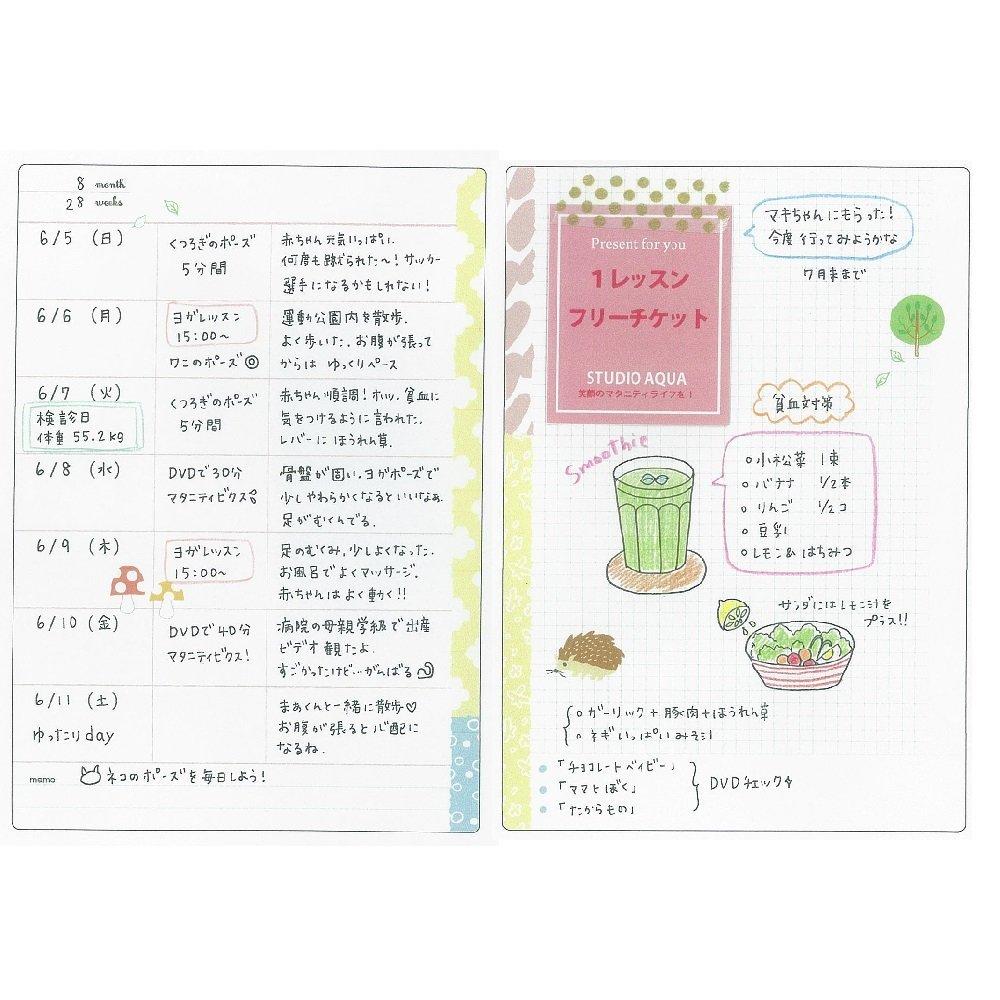 8 month
28 weeks
6/5 (日)
くつろぎのポーズ
5分間
赤ちゃん元気いっぱい.
何度も蹴られた〜!サッカー
選手になるかもしれない!
6/6 (月)
ヨガレッスン
15:00〜
ワニのポーズ◎
運動公園内を散歩.
よく歩いた.お腹が張って
からは ゆっくりペース
6/7 (火)
検診日
体重 55.2kg
くつろぎのポーズ
5分間
赤ちゃん順調!ホッ.貧血に
気をつけるように言われた.
レバーにほうれん草.
6/8 (水)
DVDで30分
マタニティビクス♪
骨盤が固い.ヨガポーズで
少しやわらかくなるといいなぁ.
足がむくんでる.
6/9 (木)
ヨガレッスン
15:00〜
足のむくみ,少しよくなった.
お風呂でよくマッサージ.
赤ちゃんはよく動く!!
6/10 (金)
DVDで40分
マタニティビクス!
病院の母親学級で出産
ビデオ観たよ.
すごかったけど…がんばる
6/11 (土)
ゆったりday
まぁくんと一緒に散歩♡
お腹が張ると心配
になるね.
memo ネコのポーズを毎日しよう!
Present for you
1レッスン
フリーチケット
STUDIO AQUA
笑顔のマタニティライフを!
マキちゃんにもらった!
今度行ってみようかな
7月末まで
貧血対策
Smoothie
○小松菜 1束
○バナナ 1/2本
○りんご 1/2コ
○豆乳
○レモン&はちみつ
サラダにはレモン汁を
プラス!!
○ガーリック+豚肉+ほうれん草
○ネギいっぱいみそ汁
「チョコレートベイビー」
「ママとぼく」
「たからもの」
DVDチェック